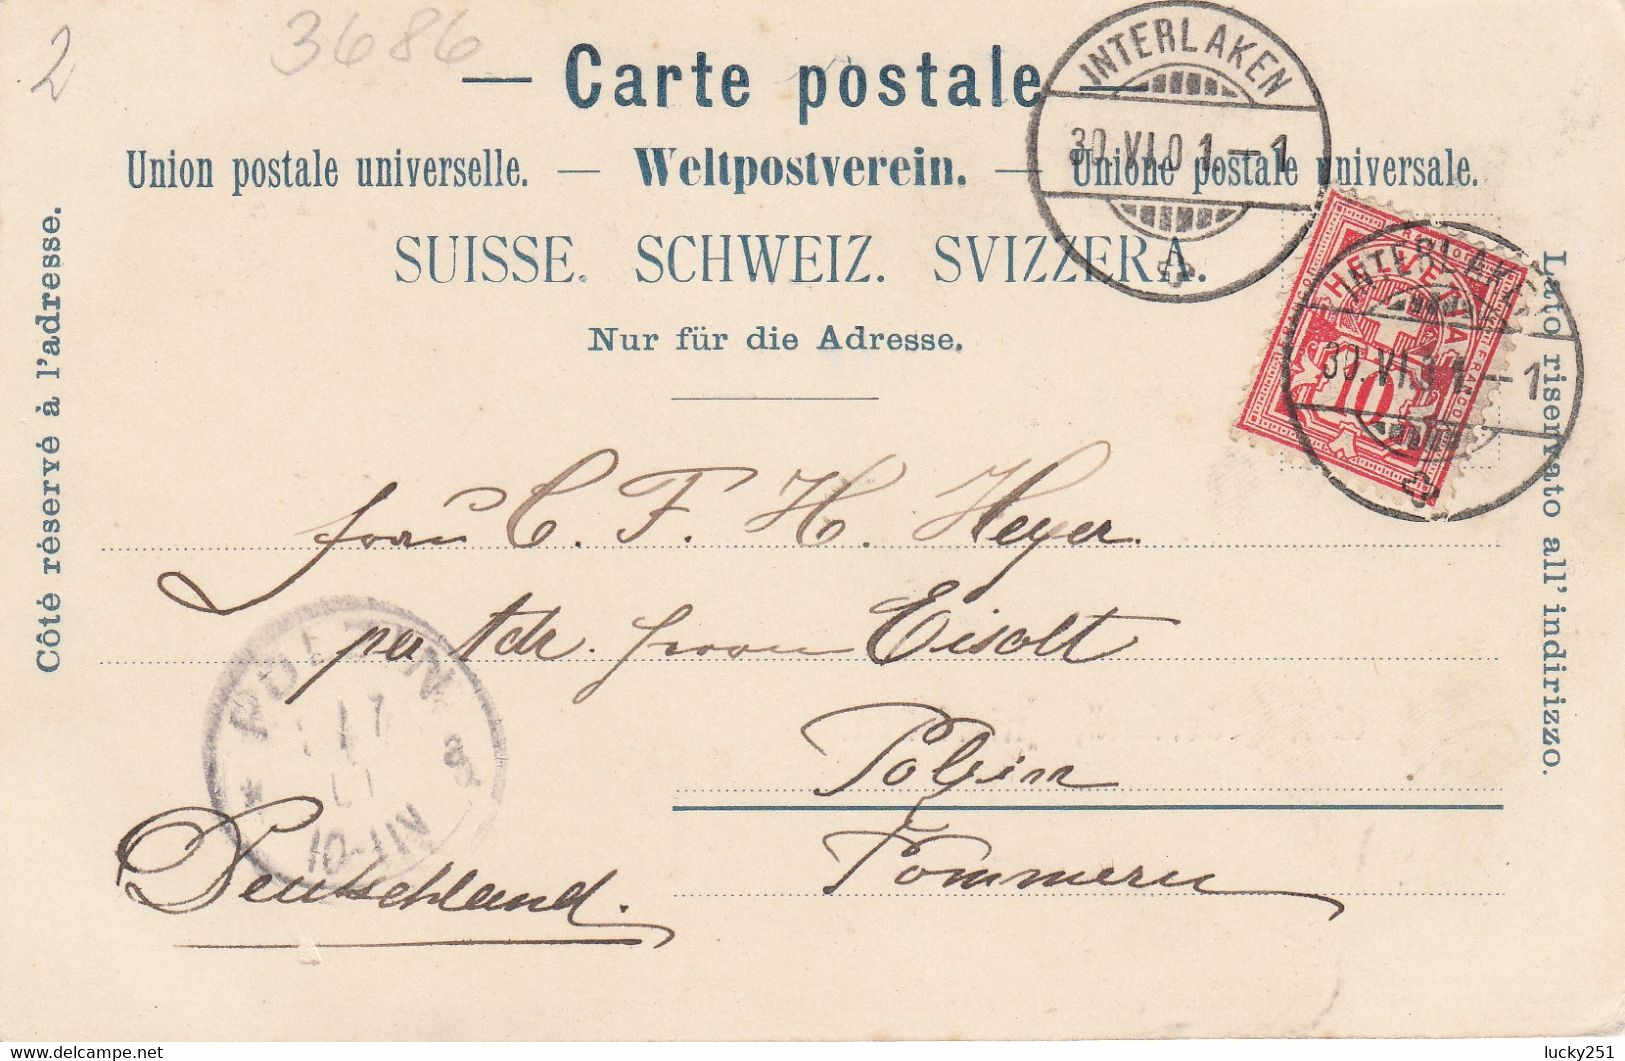 2
3686
— Carte postale —
Union postale universelle. — Weltpostverein. — Unione postale universale.
SUISSE. SCHWEIZ. SVIZZERA.
Nur für die Adresse.
Côté réservé à l'adresse.
Lato riservato all' indirizzo.
INTERLAKEN
30.VI.01–1
INTERLAKEN
30.VI.01–1
HELVETIA
10
FRANCO
C. F. H. Heyer.
per Adr. Eisolt
Polzin
Pommern
Deutschland.
POLZIN
10-11N
lucky251